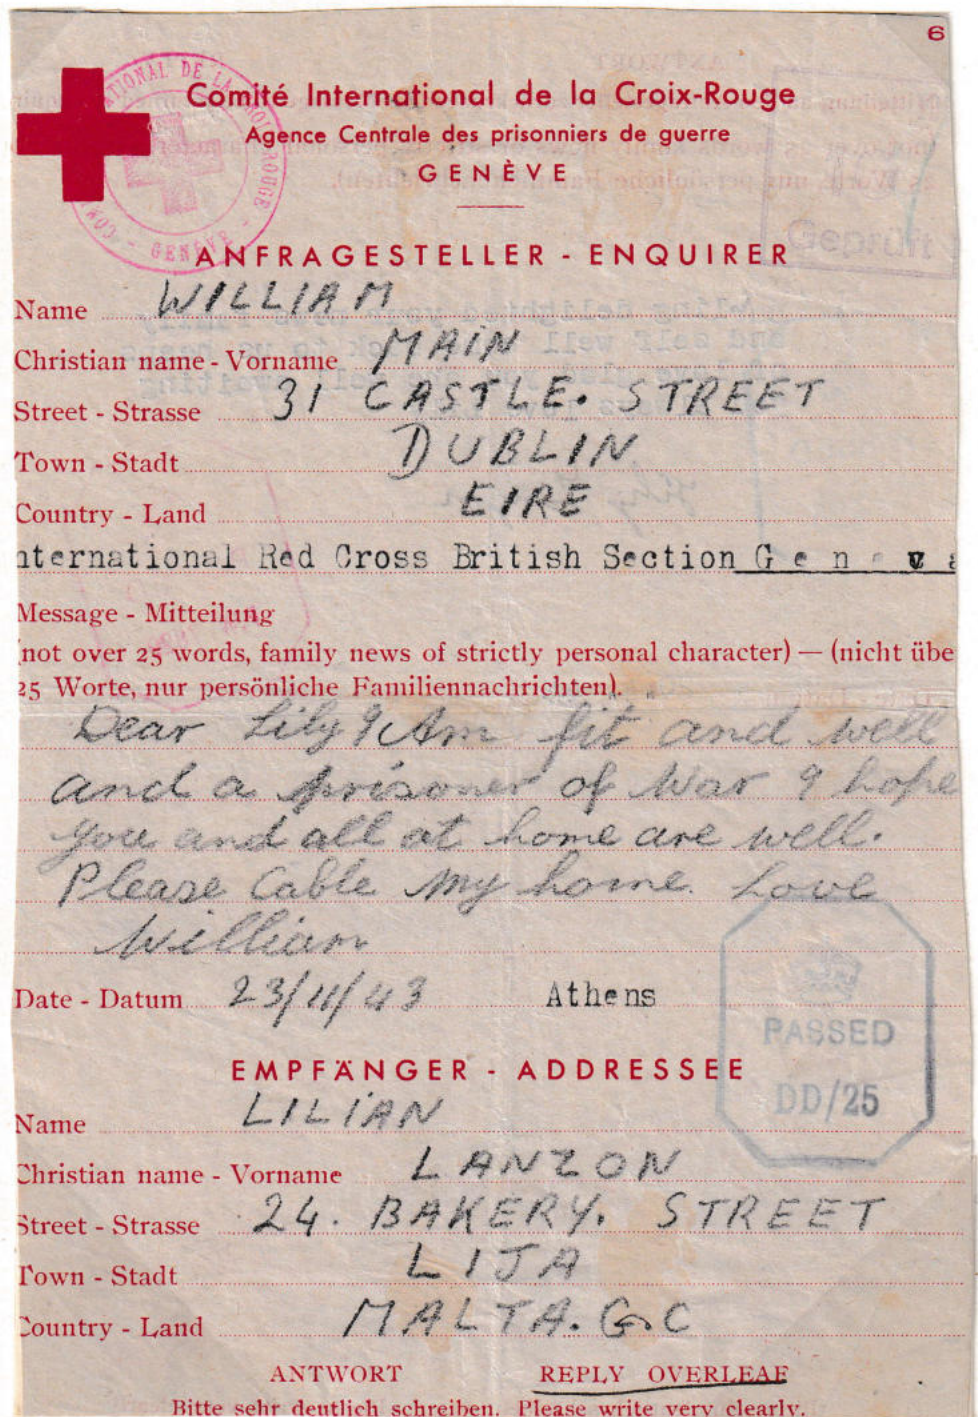 6
Comité International de la Croix-Rouge
Agence Centrale des prisonniers de guerre
GENÈVE
ANFRAGESTELLER - ENQUIRER
Name WILLIAM
Christian name - Vorname MAIN
Street - Strasse 31 CASTLE. STREET
Town - Stadt DUBLIN
Country - Land EIRE
nternational Red Cross British Section G e n e v a
Message - Mitteilung
(not over 25 words, family news of strictly personal character) — (nicht übe
25 Worte, nur persönliche Familiennachrichten).
Dear Lily I Am fit and well
and a prisoner of War I hope
you and all at home are well.
Please Cable My home. Love
William
Date - Datum 23/11/43 Athens
PASSED
DD/25
EMPFÄNGER - ADDRESSEE
Name LILIAN
Christian name - Vorname LANZON
Street - Strasse 24. BAKERY. STREET
Town - Stadt LIJA
Country - Land MALTA. G.C
ANTWORT REPLY OVERLEAF
Bitte sehr deutlich schreiben. Please write very clearly.